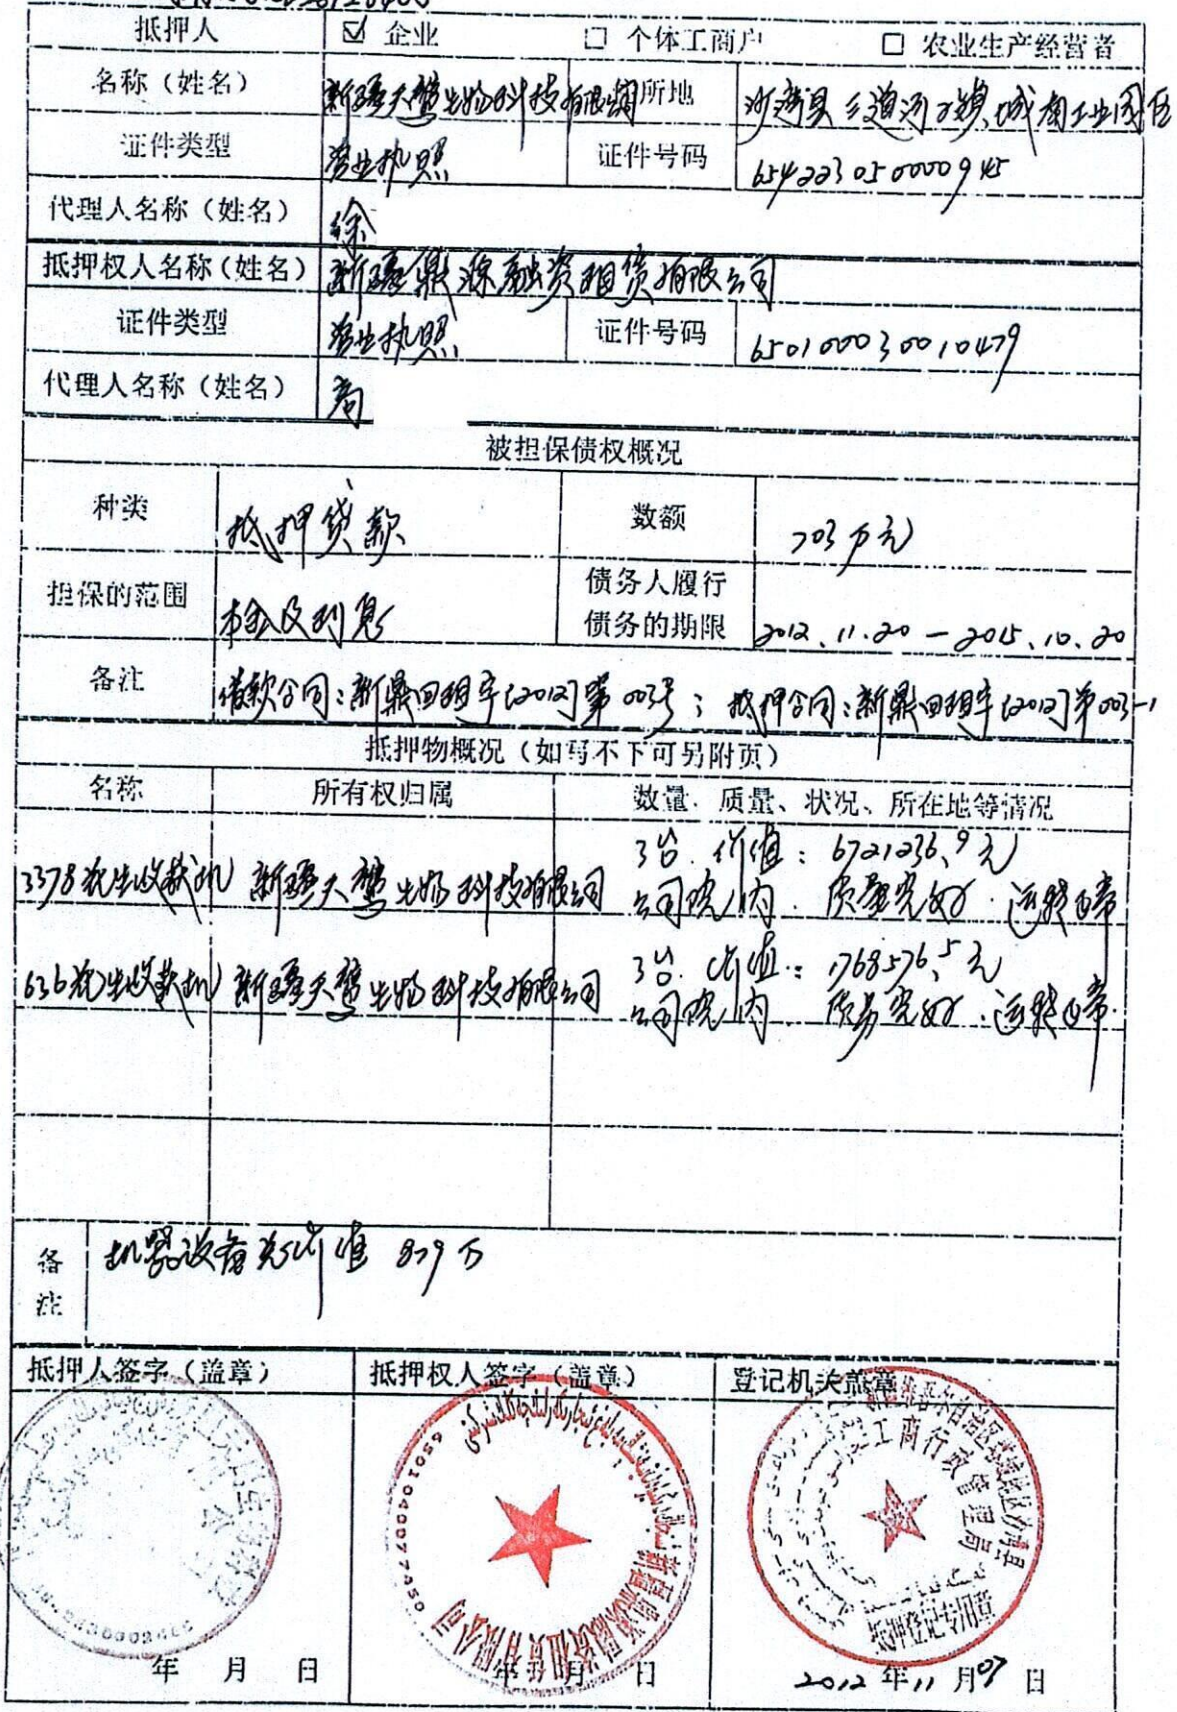 抵押人 ☑ 企业 □ 个体工商户 □ 农业生产经营者
名称（姓名） 新疆天鹫生物科技有限公司 所地 沙湾县三道河子镇城南工业园区
证件类型 营业执照 证件号码 654223050000945
代理人名称（姓名） 徐
抵押权人名称（姓名） 新疆鼎源融资租赁有限公司
证件类型 营业执照 证件号码 650100030010479
代理人名称（姓名） 高
被担保债权概况
种类 抵押贷款 数额 703万元
担保的范围 本金及利息 债务人履行
债务的期限 2012.11.20－2015.10.20
备注 借款合同：新鼎回租字[2012]第003号；抵押合同：新鼎回租字[2012]第003-1
抵押物概况（如写不下可另附页）
名称 所有权归属 数量、质量、状况、所在地等情况
3378花生收获机 新疆天鹫生物科技有限公司 3台．价值：6721236.9元
公司院内．质量完好．运转正常
636花生收获机 新疆天鹫生物科技有限公司 3台．价值：1768576.5元
公司院内．质量完好．运转正常．
备注 机器设备总价值 879万
抵押人签字（盖章） 抵押权人签字（盖章） 登记机关盖章
6501040077405
新疆鼎源融资租赁有限公司
工商行政管理局
年 月 日 年 月 日 2012年11月07日